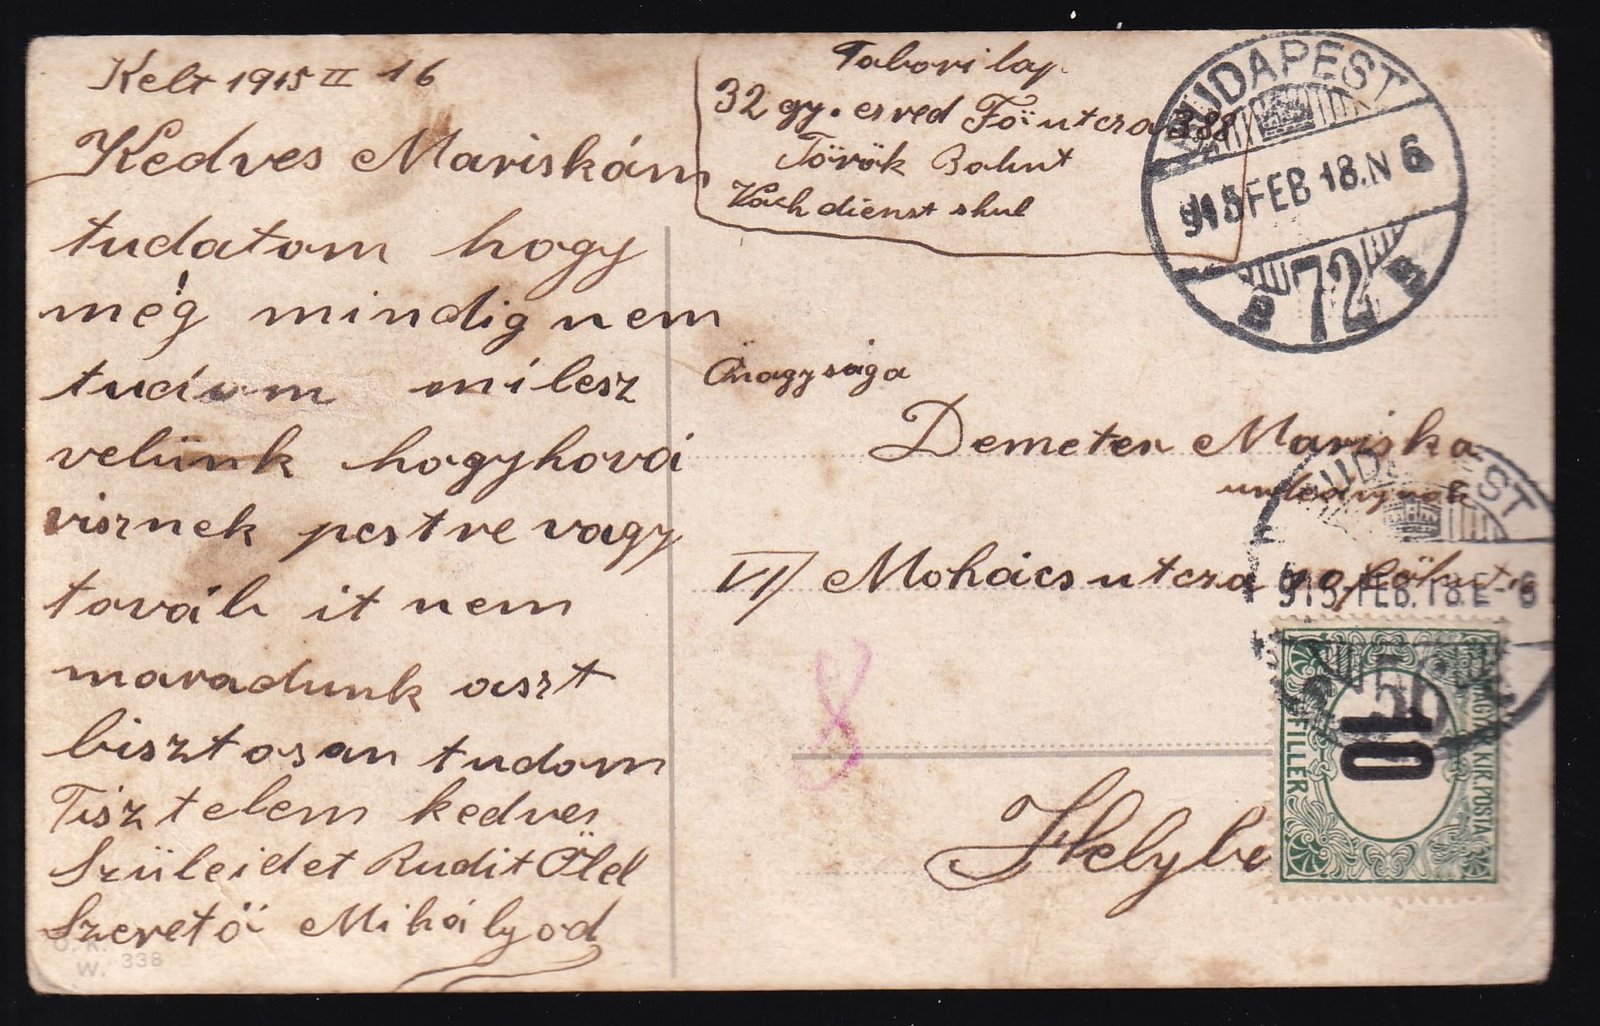 Kelt 1915 II 16
Kedves Mariskám
tudatom hogy
még mindig nem
tudom mi lesz
velünk hogy hová
visznek pestre vagy
továb it nem
maradunk aszt
bisztosan tudom
Tisztelem kedves
Szüleidet Rudit Ölel
Szerető Mihályod
W. 338
Tabori lap.
32 gy. es red Fö utcza 388
Török Bahnt
dienst
BUDAPEST
915 FEB 18.N 6
72
Önagysága
Demeter Mariska
urleánynak
VI Mohács utcza
BUDAPEST
915 FEB.18.E-6
56
MAGY. KIR. POSTA
10
FILLER
8
Helybe